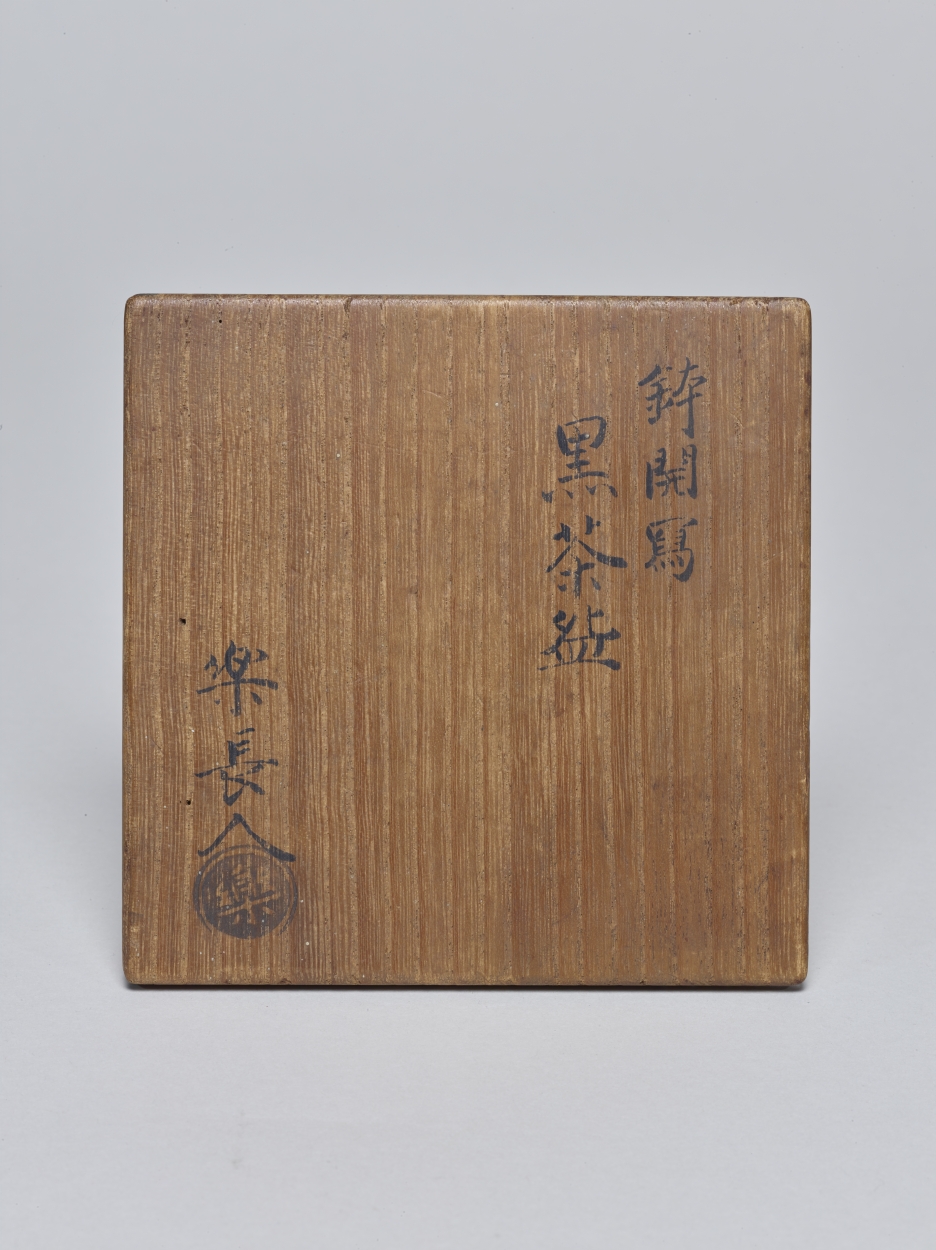 鉢開寫
黒茶碗
楽長入
樂